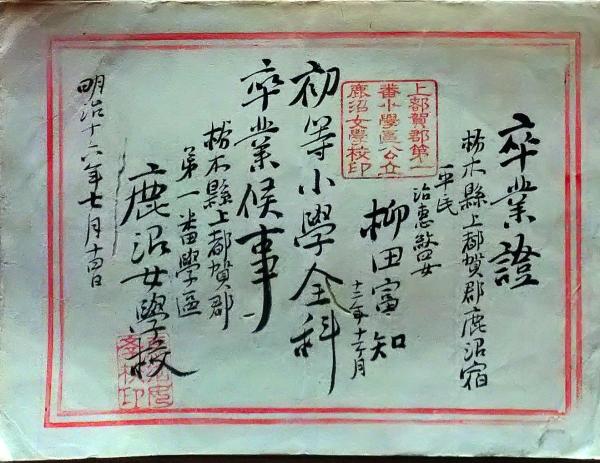 卒業證
栃木縣上都賀郡鹿沼宿
平民
治惠 女
柳田富知
十二年十一ヶ月
上都賀郡第一
番小學區公立
鹿沼女學校印
初等小學全科
卒業候事
栃木縣上都賀郡
第一番學區
鹿沼女學校
明治十六年七月十四日